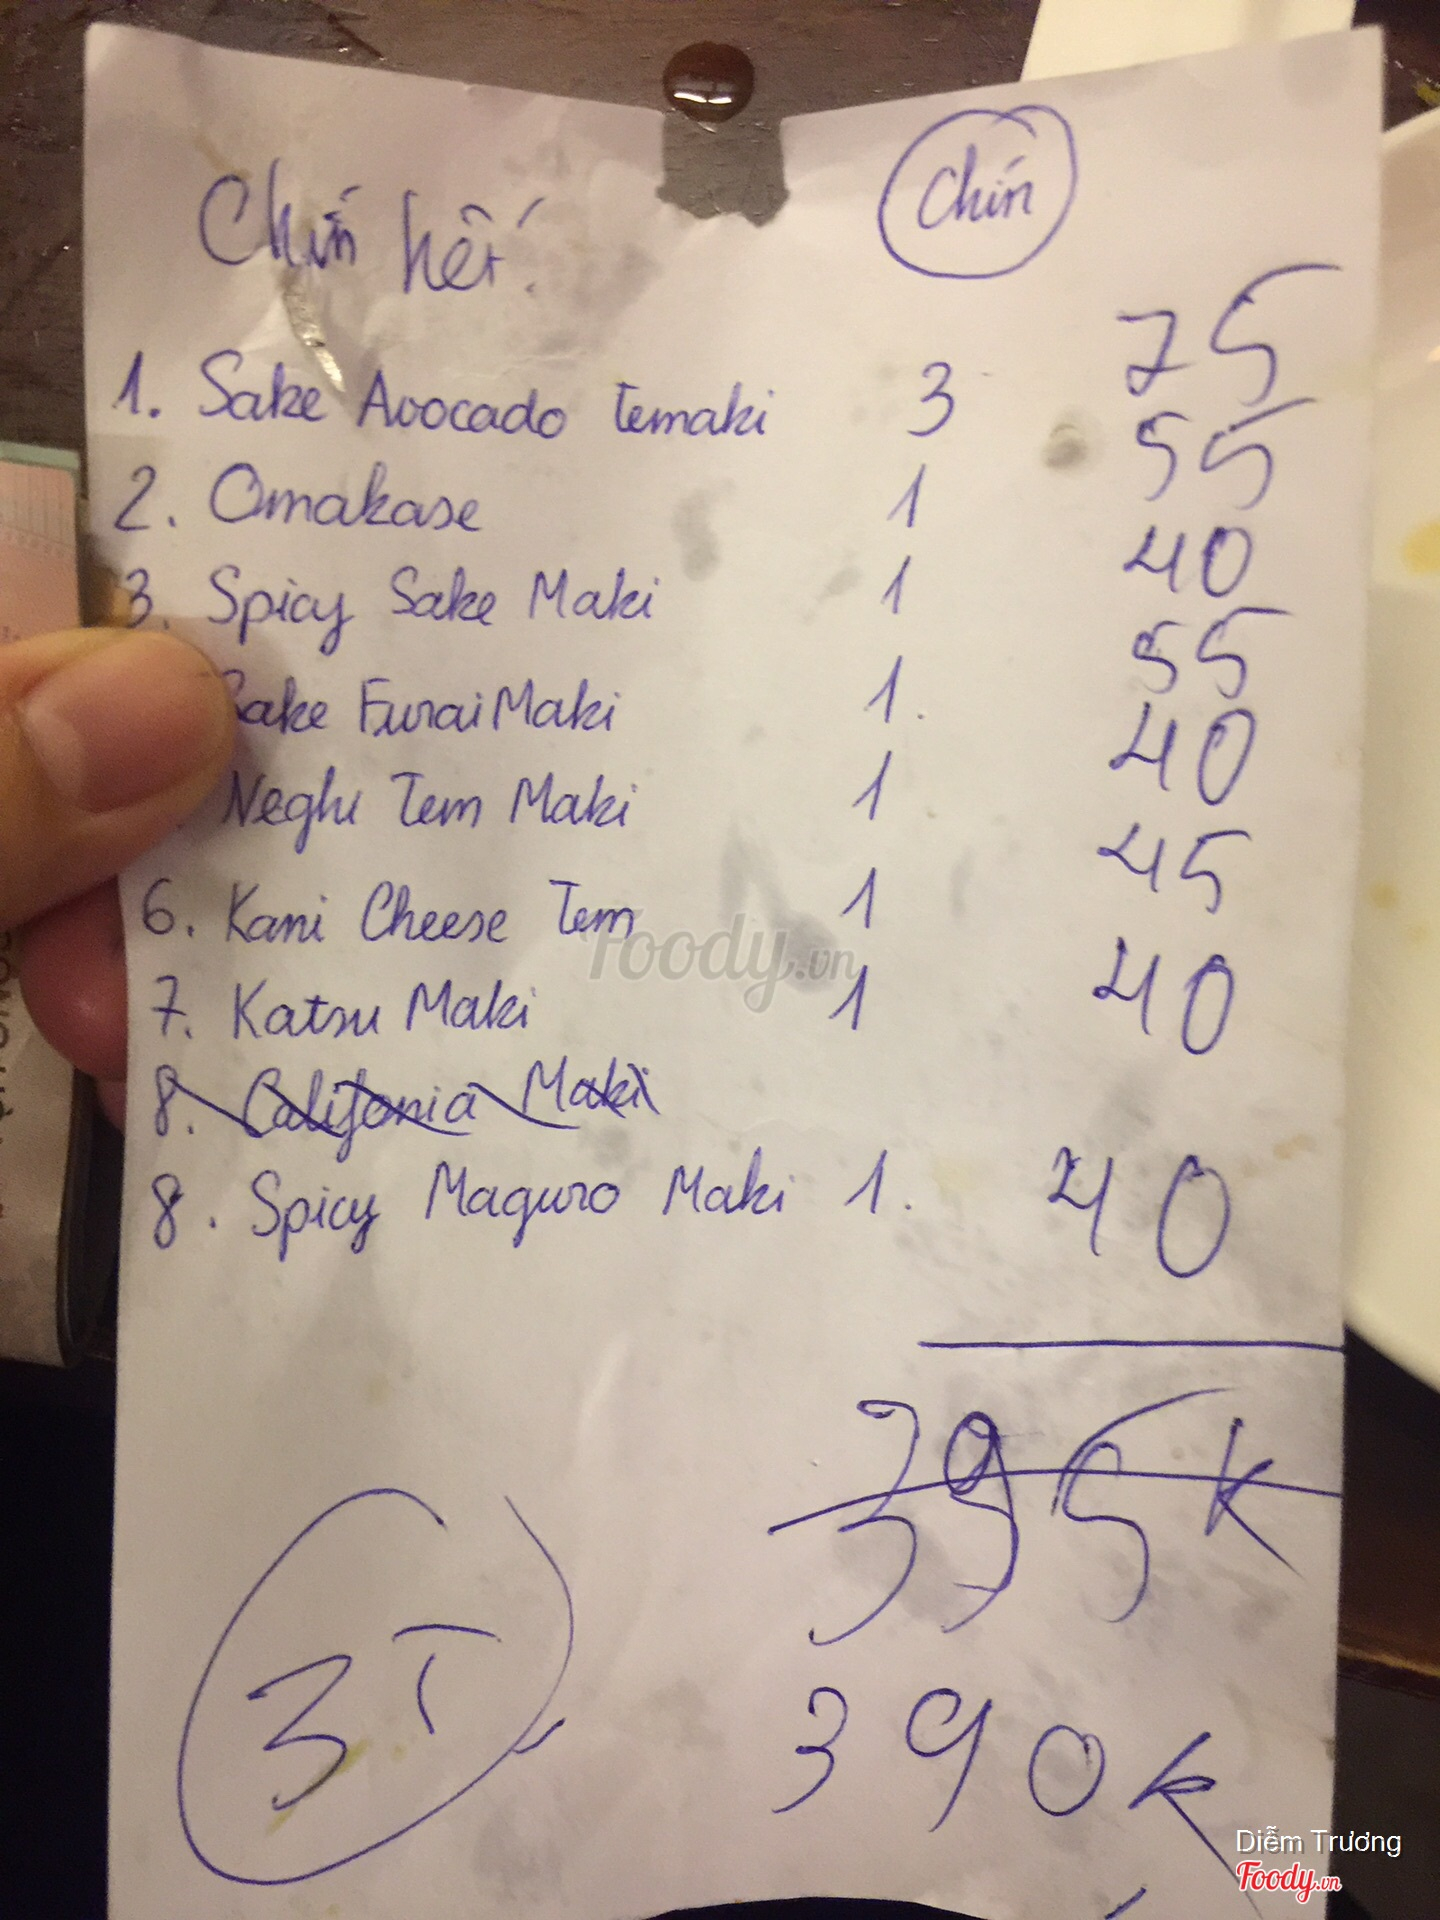 Chín
Chín hết.
1. Sake Avocado Temaki 3 75
2. Omakase 1 55
3. Spicy Sake Maki 1 40
Sake Furai Maki 1. 55
Neghi Tem Maki 1 40
6. Kani Cheese Tem 1 45
7. Katsu Maki 1 40
8. Califonia Maki
8. Spicy Maguro Maki 1. 40
395K
3T
390K
Foody.vn
Diễm Trương
Foody.vn